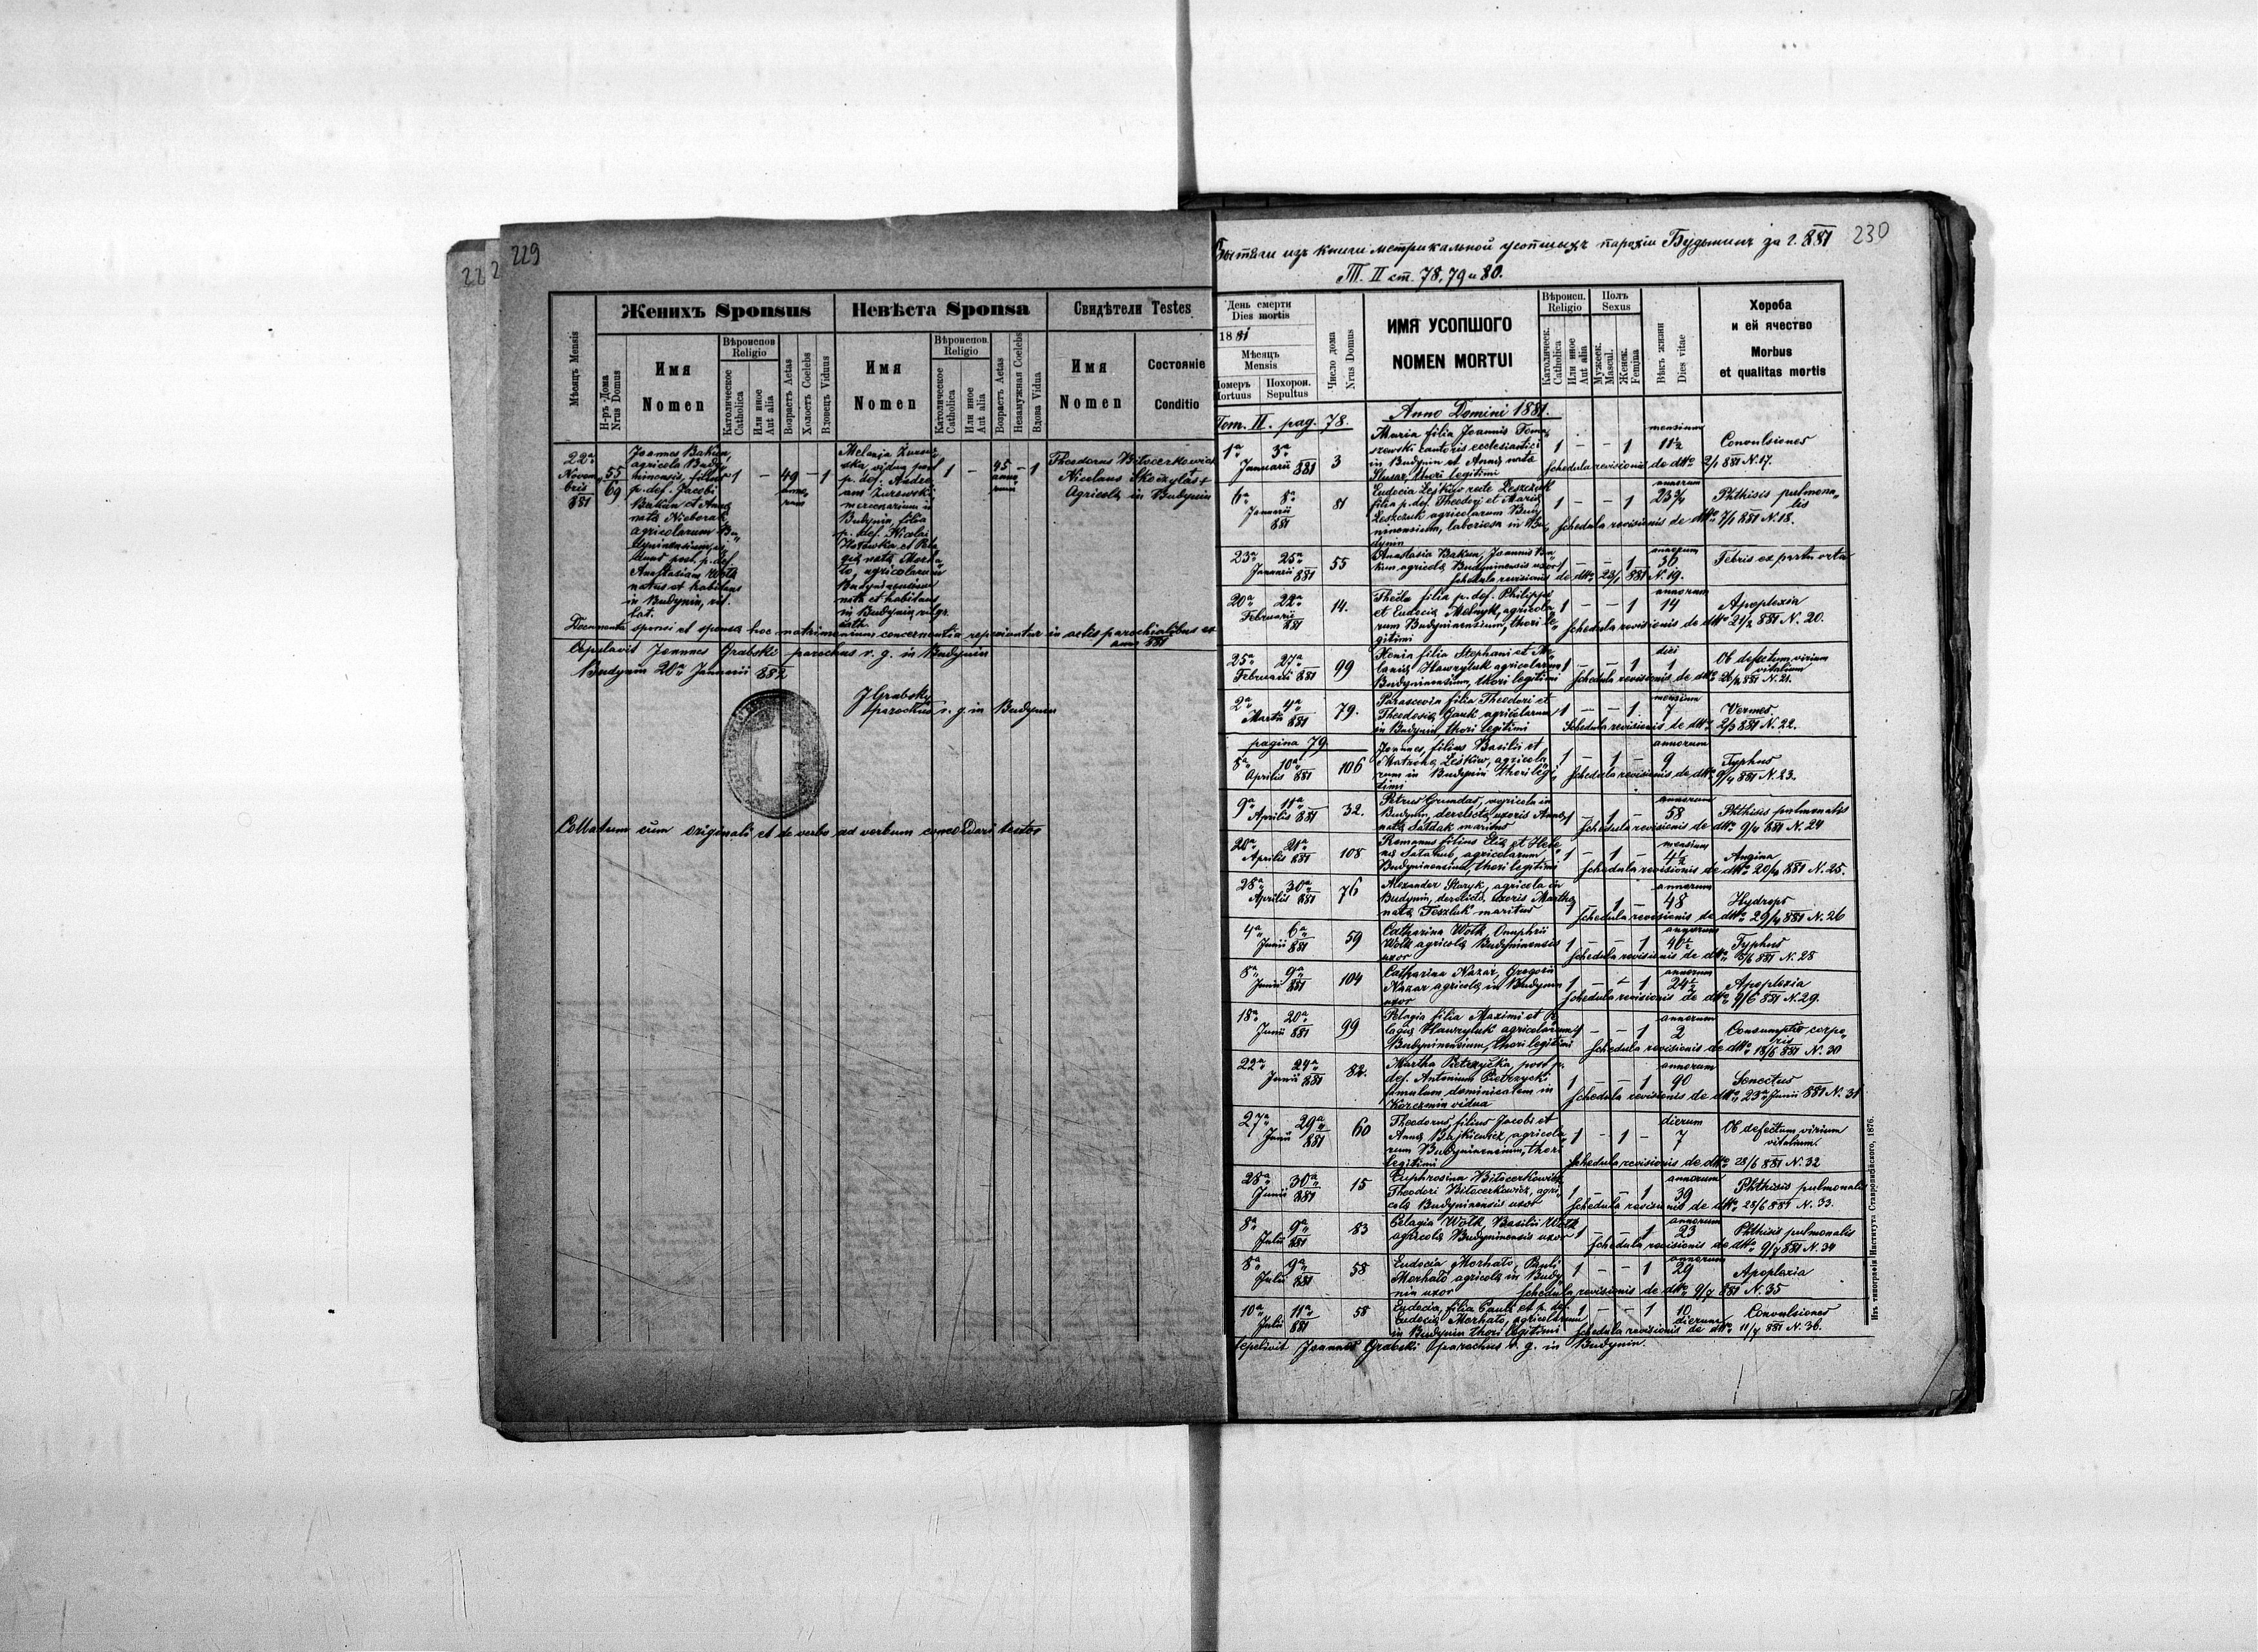 229
22
2
Женихъ Sponsus
Невѣста Sponsa
Свидѣтели Testes
Мѣсяцъ Mensis
Н-ръ Дома
Nrus Domus
Имя
Nomen
Вѣроиспов
Religio
Католическое
Catholica
Или иное
Aut alia
Возрастъ Aetas
Холостъ Coelebs
Вдовецъ Viduus
Имя
Nomen
Вѣроиспов.
Religio
Католическое
Catholica
Или иное
Aut alia
Возрастъ Aetas
Незамужная Coelebs
Вдова Vidua
Имя
Nomen
Состояніе
Conditio
22a
Novem
bris
881
55
69
Joannes Bakun,
agricola Budy
ninensis, filius
p. def. Jacobi
Bakun et Anna
nata Nieborak
agricolarum Bu
dyninensium,
viduus post. p. def.
Anastasiam
natus et habitans
in Budynin, rit.
lat.
1 – 49 – 1
anno
rum
Melania Żurow
ska, vidua post
p. def. Andre
am Żurowski
mercenarium in
Budynin, filia
p. def. Nicolai
et Pela
gia nata Morha
to, agricolarum
Budyninensium
nata et habitans
in Budynin, rel. gr.
cath.
1 – 45 – 1
anno
rum
Theodorus Biłocerkowicz
Nicolaus Skorzylas +
Agricola in Budynin
Documenta sponsi et sponsa hoc matrimonium concernentia reperiuntur in actis parochialibus ex
anno 881
Copulavit Joannes Grabski parochus r. g. in Budynin
Budynin 20a Januarii 882
J Grabsky
parochus r. g. in Budynin
Collatum cum originali et de verbo ad verbum concordari testor
230
Вытяги изъ книги метрикальной усопшихъ парохіи Будынинъ за г. 881
Т. II ст. 78, 79 и 80.
День смерти
Dies mortis
1881
Мѣсяцъ
Mensis
Номеръ
Mortuus
Похорон.
Sepultus
Число дома
Nrus Domus
ИМЯ УСОПШОГО
NOMEN MORTUI
Вѣроисп.
Religio
Католическ.
Catholica
Или иное
Aut alia
Полъ
Sexus
Мужеск.
Mascul.
Женск.
Femina
Вѣкъ жизни
Dies vitae
Хороба
и ей ячество
Morbus
et qualitas mortis
Tom. II. pag. 78.
Anno Domini 1881.
1a 3a
Januarii 881
3
Maria filia Joannis Toma
szewski cantoris ecclesiastici
in Budynin et Anna nata
Slusar, thori legitimi
1 – – 1
mensium
11½
Convulsiones
Schedula revisionis de dtto 2/1 881 N. 17.
6a 8a
Januarii
881
81
Eudocia Leśkiw recte Leszczuk
filia p. def. Theodori et Maria
Leszczuk agricolarum Budy
ninensium, laboriosa in Bu
dynin
1 – – 1
annorum
Phthisis pulmona
lis
Schedula revisionis de dtto 7/1 881 N. 18.
23a 25a
Januarii 881
55
Anastasia Bakun, Joannis Ba
kun agricola Budyninensis uxor
1 – – 1
annorum
36
Febris ex partu orta
Schedula revisionis de dtto 23/1 881 N. 19.
20a 22a
Februarii
881
14.
Thecla filia p. def. Philippi
et Eudocia Melnyk, agricola
rum Budyninensium, thori le
gitimi
1 – – 1
annorum
14
Apoplexia
Schedula revisionis de dtto 21/2 881 N. 20.
25a 27a
Februarii 881
99
Xenia filia Stephani et Me
lania Hawryluk agricolarum
Budyninensium, thori legitimi
1 – – 1
diei
1
Ob defectum virium
vitalium
Schedula revisionis de dtto 26/2 881 N. 21.
2a 4a
Martii 881
79.
Parascevia filia Theodori et
Theodosia Gauk agricolarum
in Budynin, thori legitimi
1 – – 1
mensium
7
Vermes
Schedula revisionis de dtto 2/3 881 N. 22.
pagina 79.
8a 10a
Aprilis 881
106
Joannes, filius Basilii et
Matrona Leśkiw, agricola
rum in Budynin thori legi
timi
1 – 1 –
annorum
9
Typhus
Schedula revisionis de dtto 9/4 881 N. 23.
9a 11a
Aprilis 881
32.
Petrus Grundas, agricola in
Budynin, derelicta uxoris Anna
nata maritus
1 – 1 –
annorum
58
Phthisis pulmonalis
Schedula revisionis de dtto 9/4 881 N. 24
20a 21a
Aprilis 881
108
Romanus filius Elia et Hele
na agricolarum
Budyninensium, thori legitimi
1 – 1 –
mensium
4½
Angina
Schedula revisionis de dtto 20/4 881 N. 25.
28a 30a
Aprilis 881
76
Alexander Staryk, agricola in
Budynin, derelicta uxoris Martha
nata Toszluk maritus
1 – 1 –
annorum
48
Hydrops
Schedula revisionis de dtto 29/4 881 N. 26
4a 6a
Junii 881
59
Catharina Wołk, Onuphrii
Wołk agricola Budyninensis
uxor
1 – – 1
annorum
40½
Typhus
Schedula revisionis de dtto 5/6 881 N. 28
8a 9a
Junii 881
104
Catharina Nazar, Gregorii
Nazar agricola in Budynin
uxor
1 – – 1
annorum
24½
Apoplexia
Schedula revisionis de dtto 9/6 881 N. 29.
18a 20a
Junii 881
99
Pelagia filia Maximi et Pe
lagia Hawryluk agricolarum
Budyninensium, thori legitimi
1 – – 1
annorum
2
Consumptio corpo
ris
Schedula revisionis de dtto 18/6 881 N. 30
22a 24a
Junii 881
82.
Martha Pietrzycka, post p.
def. Antonium Pietrzycki
famulum dominicalem in
Korczmin vidua
1 – – 1
annorum
90
Senectus
Schedula revisionis de dtto 23a Junii 881 N. 31
27a 29a
Junii 881
60
Theodorus, filius Jacobi et
Anna Bajkiewicz, agricola
rum Budyninensium, thori
legitimi
1 – 1 –
dierum
7
Ob defectum virium
vitalium.
Schedula revisionis de dtto 28/6 881 N. 32
28a 30a
Junii 881
15
Euphrosina Biłocerkowicz
Theodori Biłocerkowicz, agri
cola Budyninensis uxor
1 – – 1
annorum
39
Phthisis pulmonalis
Schedula revisionis de dtto 28/6 881 N. 33.
8a 9a
Julii 881
83
Pelagia Wołk, Basilii Wołk
agricola Budyninensis uxor
1 – – 1
annorum
23
Phthisis pulmonalis
Schedula revisionis de dtto 9/7 881 N. 34
8a 9a
Julii 881
58
Eudocia Morhało, Pauli
Morhało agricola in Budy
nin uxor
1 – – 1
annorum
29
Apoplexia
Schedula revisionis de dtto 9/7 881 N. 35
10a 11a
Julii 881
58
Eudocia, filia Pauli et p. def.
Eudocia Morhało, agricolarum
in Budynin thori legitimi
1 – – 1
10
dierum
Convulsiones
Schedula revisionis de dtto 11/7 881 N. 36.
Sepelivit Joannes Grabski parochus r. g. in Budynin.
Изъ типографіи Института Ставропигійского, 1876.